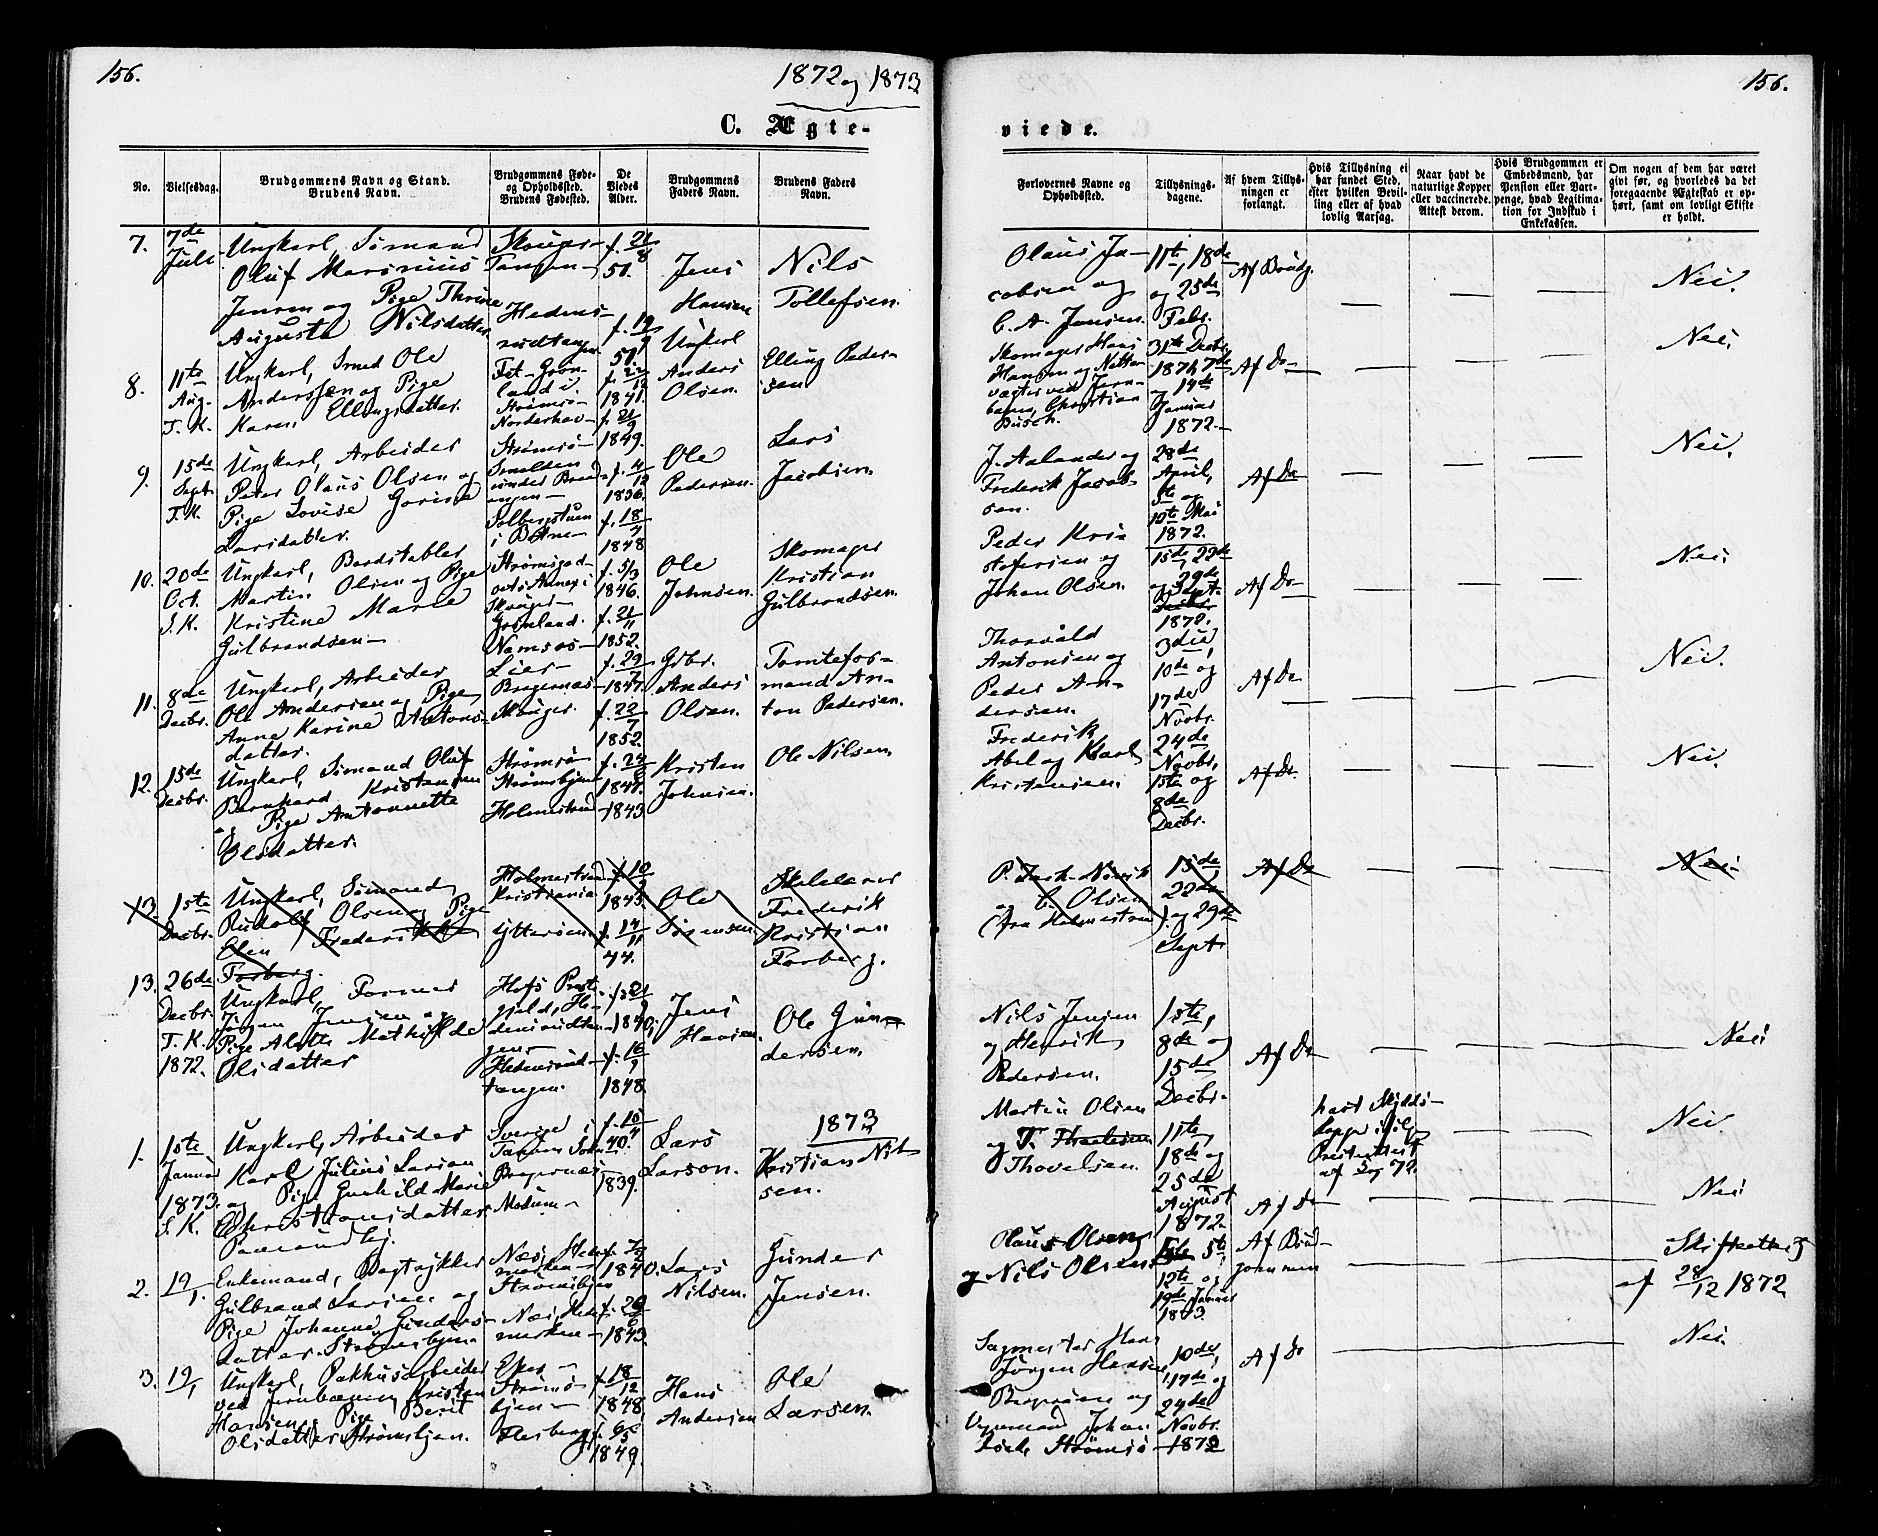 156.
1872 og 1873
C. Ægte-
No.
Vielsesdag.
Brudgommens Navn og Stand.
Brudens Navn.
Brudgommens Føde-
og Opholdssted.
Brudens Fødested.
De
Viedes
Alder.
Brudgommens
Faders Navn.
Brudens Faders
Navn.
7.
7de
Juli
Ungkarl, Sømand
Oluf Marinius
Jensen og Pige Thrine
Augusta Nilsdatter
Skouger-
Tangen-
Hedens-
rudtangen
f. 21/8
51.
f. 19/9
51.
Jens
Hansen
Nils
Tollefsen.
8.
11te
Aug.
T. K.
Ungkarl, Smed Ole
Anderssen og Pige
Karen Ellingsdatter.
land i
Strømsø-
Norderhov-
f. 22/12
1841.
f. 21/9
1849.
Ungkarl
Anders
Olsen.
Elling Peder-
sen
9.
15de
Sept.
T. K.
Ungkarl, Arbeider
Peter Olaus Olsen og
Pige Lovise Gorine
Larsdatter.
Strømsø-
Solbergstuen
i Botne-
f. 4/12
1836.
f. 18/7
1848
Ole
Pedersen.
Lars
Jacobsen.
10.
20de
Oct.
S. K.
Ungkarl, Bordstabler
Martin Olsen og Pige
Kristine Marie
Gulbrandsen-
Strømsgod-
sets Annex i
Skouger-
Grønland.
Namsos-
f. 5/3
1846.
f. 21/11
1852.
Ole
Johnsen.
Skomager
Kristian
Gulbrandsen.
11.
8de
Decbr.
Ungkarl, Arbeider
Ole Andersen og Pige
Anne Karine Antons-
datter.
Lier-
Bragernæs-
Skouger.
f. 29/7
1847.
f. 22/7
1852.
Gbr.
Anders
Olsen.
Tomtefor-
mand An-
ton Pedersen.
12.
15de
Decbr.
Ungkarl, Sømand Oluf
Bernhard Kristensen
og Pige Antonette
Olsdatter.
Strømsø-
Strømsbjen
Holmestrand
1847.
1843
Kristen
Johnsen.
Ole Nilsen.
13.
1ste
Decbr.
Ungkarl, Sømand
Rudolf Olsen og Pige
Elen Frederikke
Forberg.
Holmestrand
Kristiania
Ytterøen.
f. 10
1843.
f. 14/11
44.
Ole
Sørensen
Skolelærer
Frederik
Kristian
Forberg.
13.
26de
Decbr.
T. K.
1872.
Ungkarl, Former
Jørgen Jensen og
Pige Alette Mathilde
Olsdatter
Hofs Prest-
gjeld, He-
densrudtan-
gen-
Hedensrud-
tangen.
f. 21
1840,
f. 16/9
1848.
Jens
Hansen
Ole Gun-
dersen.
1873
1.
1ste
Januar
1873.
S. K.
Ungkarl, Arbeider
Karl Julius Larson
og Pige Gunhild Marie
Christiansdatter
Sverige i
Bragernæs
Modum-
40.
1839.
Lars
Larson.
Kristian Nil-
sen.
2.
19/1.
Enkemand, Bogtrykker
Gulbrand Larsen og
Pige Johanne Gunders-
datter. Strømsbjen.
Næs, Hede-
marken-
Strømsbjen
Næs, Hede-
marken-
1840.
1843.
Lars
Nilsen.
Gunder
Jensen.
3.
19/1
Ungkarl, Pakhusarbeider
ved Jernbanen Kristen
Hansen, Pige Berit
Olsdatter Strømsbjen.
Eker-
Strøms-
bjen-
Flesberg
f. 18/12
1848.
f. 6/5
1849.
Hans
Andersen
Ole
Larsen.
156.
viede.
Forlovernes Navne og
Opholdssted.
Tillysnings-
dagene.
Af hvem Tillys-
ningen er
forlangt.
Hvis Tillysning ei
har fundet Sted,
efter hvilken Bevil-
ling eller af hvad
lovlig Aarsag.
Naar havt de
naturlige Kopper
eller vaccinerede.
Attest derom.
Hvis Brudgommen er
Embedsmand, har
Pension eller Vart-
penge, hvad Legitima-
tion for Indskud i
Enkekassen.
Om nogen af dem har været
givt før, og hvorledes da det
foregaaende Ægteskab er op-
hørt, samt om lovligt Skifte
er holdt.
Olaus Ja-
cobsen og
C. A. Jensen.
11te, 18de
og 25de
Febr.
Af Brudg.
Nei.
Skomager Hans
Hansen og Natte-
vægter ved Jern-
banen, Christian
Busch.
31te Decbr.
1871, 7de
og 14de
Januar
1872.
Af Do
Nei.
J. Aalander og
Frederik Jacob-
sen.
28de
April,
5te og
Mai
1872.
Af Do
Nei.
Peder Kri-
stofersen og
Johan Olsen.
15de, 22de
og 29de
Sept.
Decbr
1872.
Af Do
Nei.
Thorvald
Antonsen og
Peder An-
dersen.
3die,
10de og
17de
Novbr.
Af Do
Nei.
Frederik
Abel og Karl
Kristensen.
24de
Novbr,
1ste og
8de
Decbr.
Af Do
Nei.
og C. Olsen
(fra Holmestrand).
15de
22de
og 29de
Sept.
Af Do
Nei.
Nils Jensen
og Henrik
Pedersen.
1ste,
8de og
15de
Decbr.
Af Do
Nei
Martin Olsen
og T.
Thovelsen.
11te,
18de og
25de
August
1872.
Af Do
havt Skydds-
koppe ifølge
Prestattest
Nei.
Nei
Olaus Olsen
og Nils Olsen
5te
12te og
19de Januar
1873.
Af Brud-
gommen
Skifteattest
af 28/12 1872
Sagmester Hans
Jørgen Hansen
og
Johan
Strømsø
10de,
17de og
24de
Novbr.
1872
Af Do
Nei.